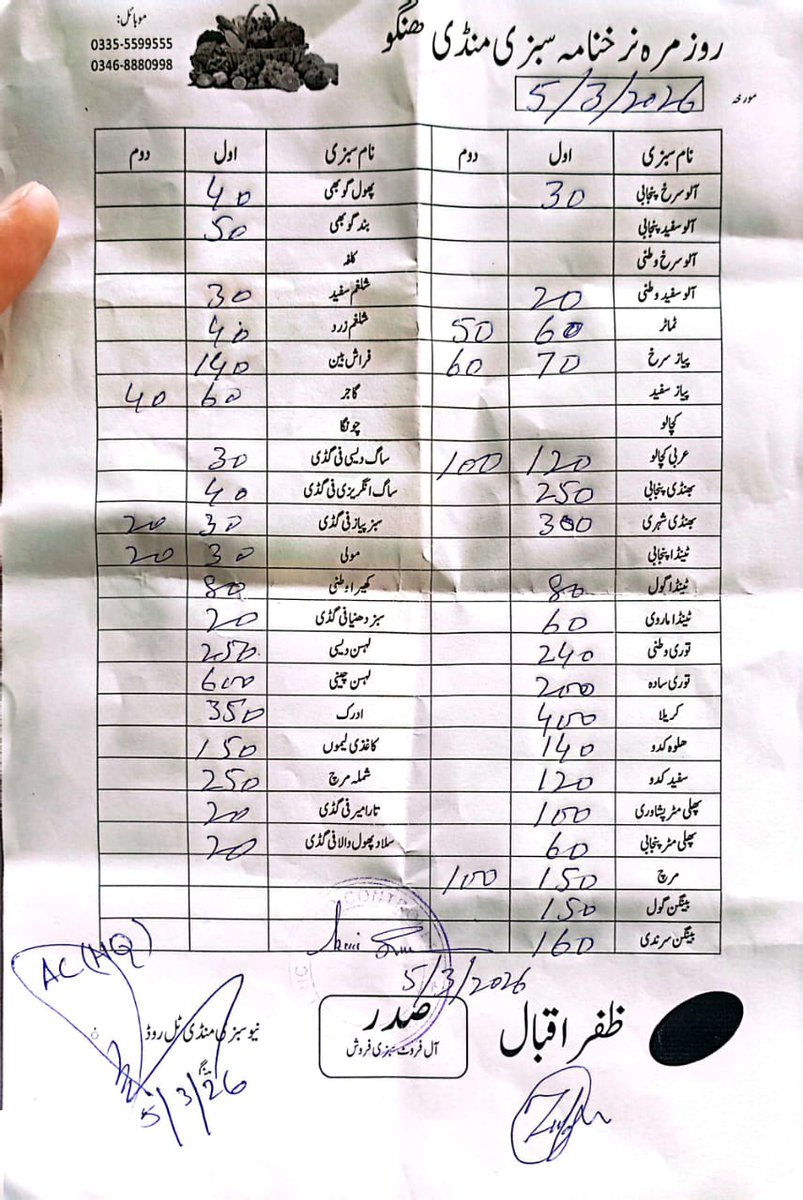 موبائل:
0335-5599555
0346-8880998
روزمرہ نرخنامہ سبزی منڈی ھنگو
مورخہ 5/3/2026
نام سبزی اول دوم نام سبزی اول دوم
آلو سرخ پنجابی 30 پھول گوبھی 40
آلو سفید پنجابی بند گوبھی 50
آلو سرخ وطنی کلفہ
آلو سفید وطنی 20 شلغم سفید 30
ٹماٹر 60 50 شلغم زرد 40
پیاز سرخ 70 60 فراش بین 140
پیاز سفید گاجر 60 40
کچالو چونگا
عربی کچالو 120 100 ساگ دیسی فی گڈی 30
بھنڈی پنجابی 250 ساگ انگریزی فی گڈی 40
بھنڈی شہری 300 سبز پیاز فی گڈی 30 20
ٹینڈا پنجابی مولی 30 20
ٹینڈا گول 80 کھیرا وطنی 80
ٹینڈا ماروی 60 سبز دھنیا فی گڈی 20
توری وطنی 240 لہسن دیسی 250
توری سادہ 200 لہسن چینی 600
کریلا 400 ادرک 350
حلوہ کدو 140 کاغذی لیموں 150
سفید کدو 120 شملہ مرچ 250
پھلی مٹر پشاوری 100 تارامیر فی گڈی 20
پھلی مٹر پنجابی 60 سلاد پھول والا فی گڈی 20
مرچ 150 100
بینگن گول 150
بینگن سرندی 160
5/3/2026
AC (HQ)
5/3/26
ظفر اقبال
صدر
آل فروٹ سبزی فروش
نیو سبزی منڈی ٹل روڈ
ہنگو